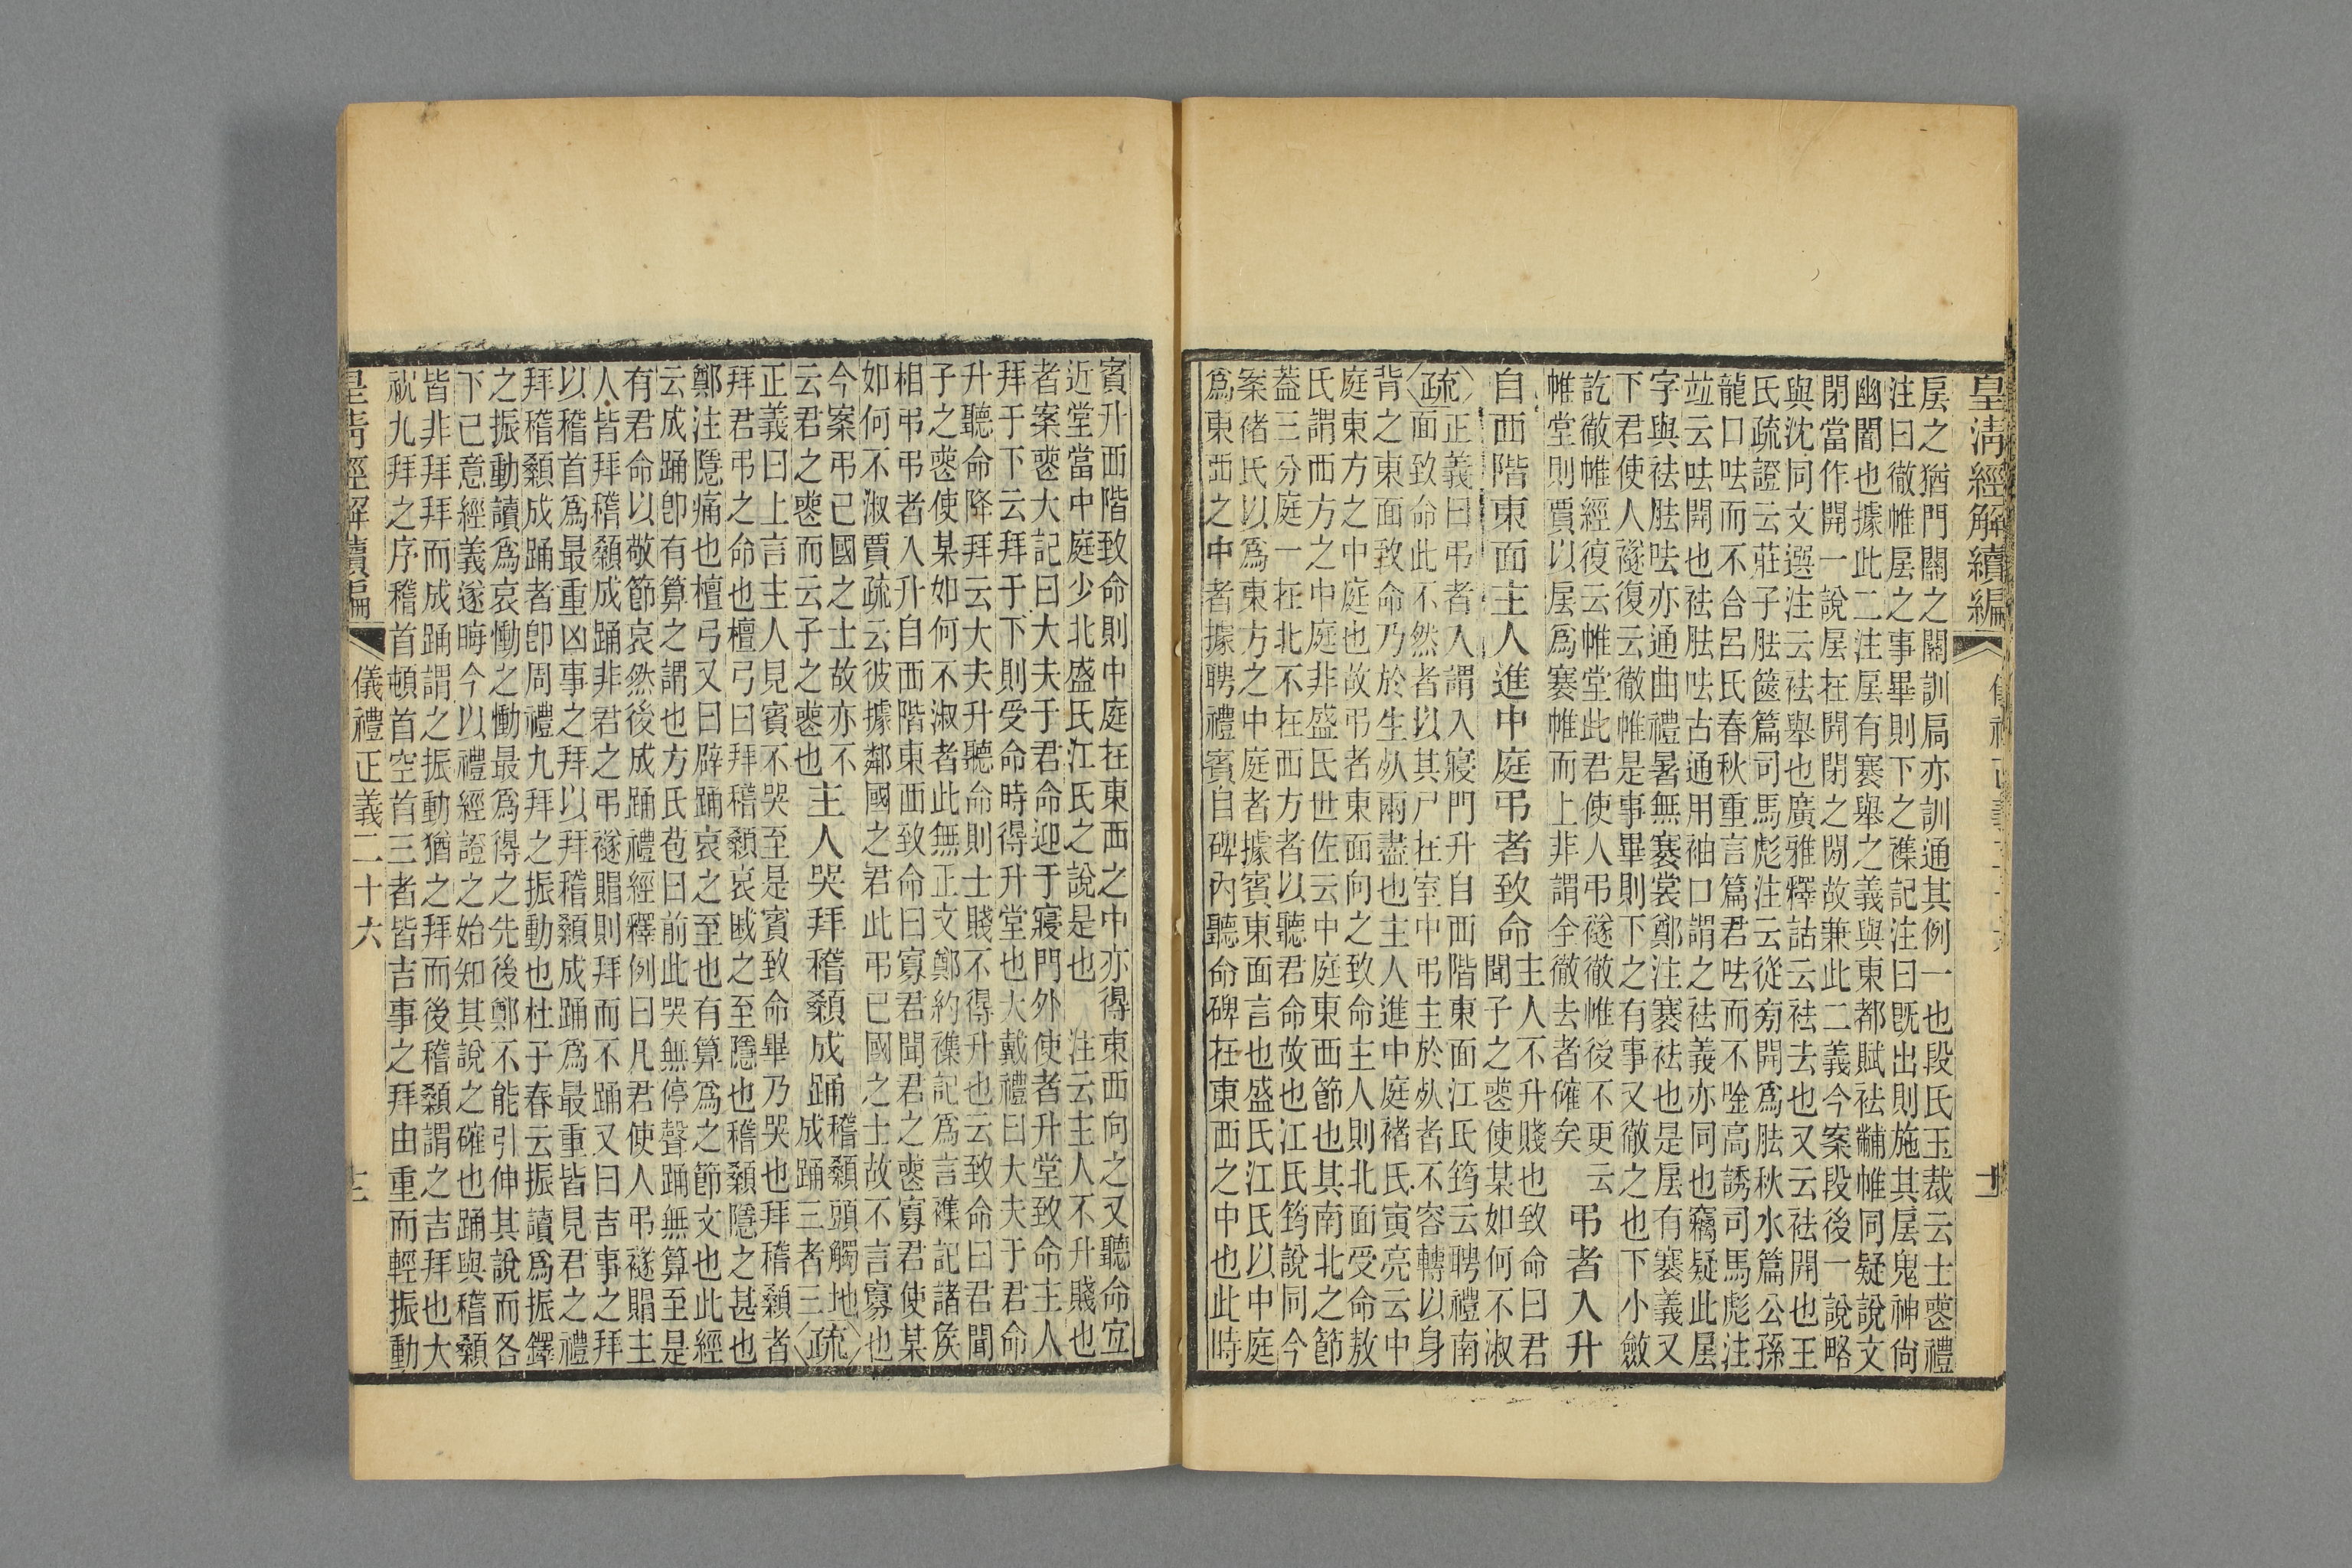 皇淸經解續編
扂之猶門闗之闗訓扃亦訓通其例一也段氏玉裁云士喪禮
注曰徹帷扂之事畢則下之襍記注曰旣出則施其扂鬼神尙
幽闇也據此二注扂有褰舉之義與東都賦袪黼帷同疑說文
閉當作開一說扂在開閉之閒故兼此二義今案段後一說略
與沈同文選注云袪舉也廣雅釋詁云袪去也又云袪開也王
氏疏證云莊子胠篋篇司馬彪注云從旁開爲胠秋水篇公孫
龍口呿而不合呂氏春秋重言篇君呿而不唫高誘司馬彪注
竝云呿開也袪胠呿古通用袖口謂之袪義亦同也竊疑此扂
字與袪胠呿亦通曲禮暑無褰裳鄭注褰袪也是扂有褰義又
下君使人襚復云徹帷是事畢則下之有事又徹之也下小斂
訖徹帷經復云帷堂此君使人弔襚徹帷後不更云
帷堂則賈以扂爲褰帷而上非謂全徹去者確矣
弔者入升
自西階東面主人進中庭弔者致命
主人不升賤也致命曰君
聞子之喪使某如何不淑
疏
正義曰弔者入謂入寢門升自西階東面江氏筠云聘禮南
面致命此不然者以其尸在室中弔主於㱔者不容轉以身
背之東面致命乃於生㱔兩盡也主人進中庭褚氏寅亮云中
庭東方之中庭也故弔者東面向之致命主人則北面受命敖
氏謂西方之中庭非盛氏世佐云中庭東西節也其南北之節
蓋三分庭一在北不在西方者以聽君命故也江氏筠說同今
案褚氏以爲東方之中庭者據賓東面言也盛氏江氏以中庭
爲東西之中者據聘禮賓自碑內聽命碑在東西之中也此時
賓升西階致命則中庭在東西之中亦得東西向之又聽命宜
近堂當中庭少北盛氏江氏之說是也 注云主人不升賤也
者案喪大記曰大夫于君命迎于寢門外使者升堂致命主人
拜于下云拜于下則受命時得升堂也大戴禮曰大夫于君命
升聽命降拜云大夫升聽命則士賤不得升也云致命曰君聞
子之喪使某如何不淑者此無正文鄭約襍記爲言襍記諸矦
相弔弔者入升自西階東面致命曰寡君聞君之喪寡君使某
如何不淑賈疏云彼據鄰國之君此弔已國之士故不言寡也
今案弔已國之士故亦不
云君之喪而云子之喪也
主人哭拜稽顙成踊
稽顙頭觸地
成踊三者三
疏
正義曰上言主人見賓不哭至是賓致命畢乃哭也拜稽顙者
拜君弔之命也檀弓曰拜稽顙哀戚之至隱也稽顙隱之甚也
鄭注隱痛也檀弓又曰辟踊哀之至也有算爲之節文也此經
云成踊卽有算之謂也方氏苞曰前此哭無停聲踊無算至是
有君命以敬節哀然後成踊禮經釋例曰凡君使人弔襚賵主
人皆拜稽顙成踊非君之弔襚賵則拜而不踊又曰吉事之拜
以稽首爲最重凶事之拜以拜稽顙成踊爲最重皆見君之禮
拜稽顙成踊者卽周禮九拜之振動也杜子春云振讀爲振鐸
之振動讀爲哀慟之慟最爲得之先後鄭不能引伸其說而各
下已意經義遂晦今以禮經證之始知其說之確也踊與稽顙
皆非拜拜而成踊謂之振動猶之拜而後稽顙謂之吉拜也大
祝九拜之序稽首頓首空首三者皆吉事之拜由重而輕振動
皇淸經解續編 儀禮正義二十六